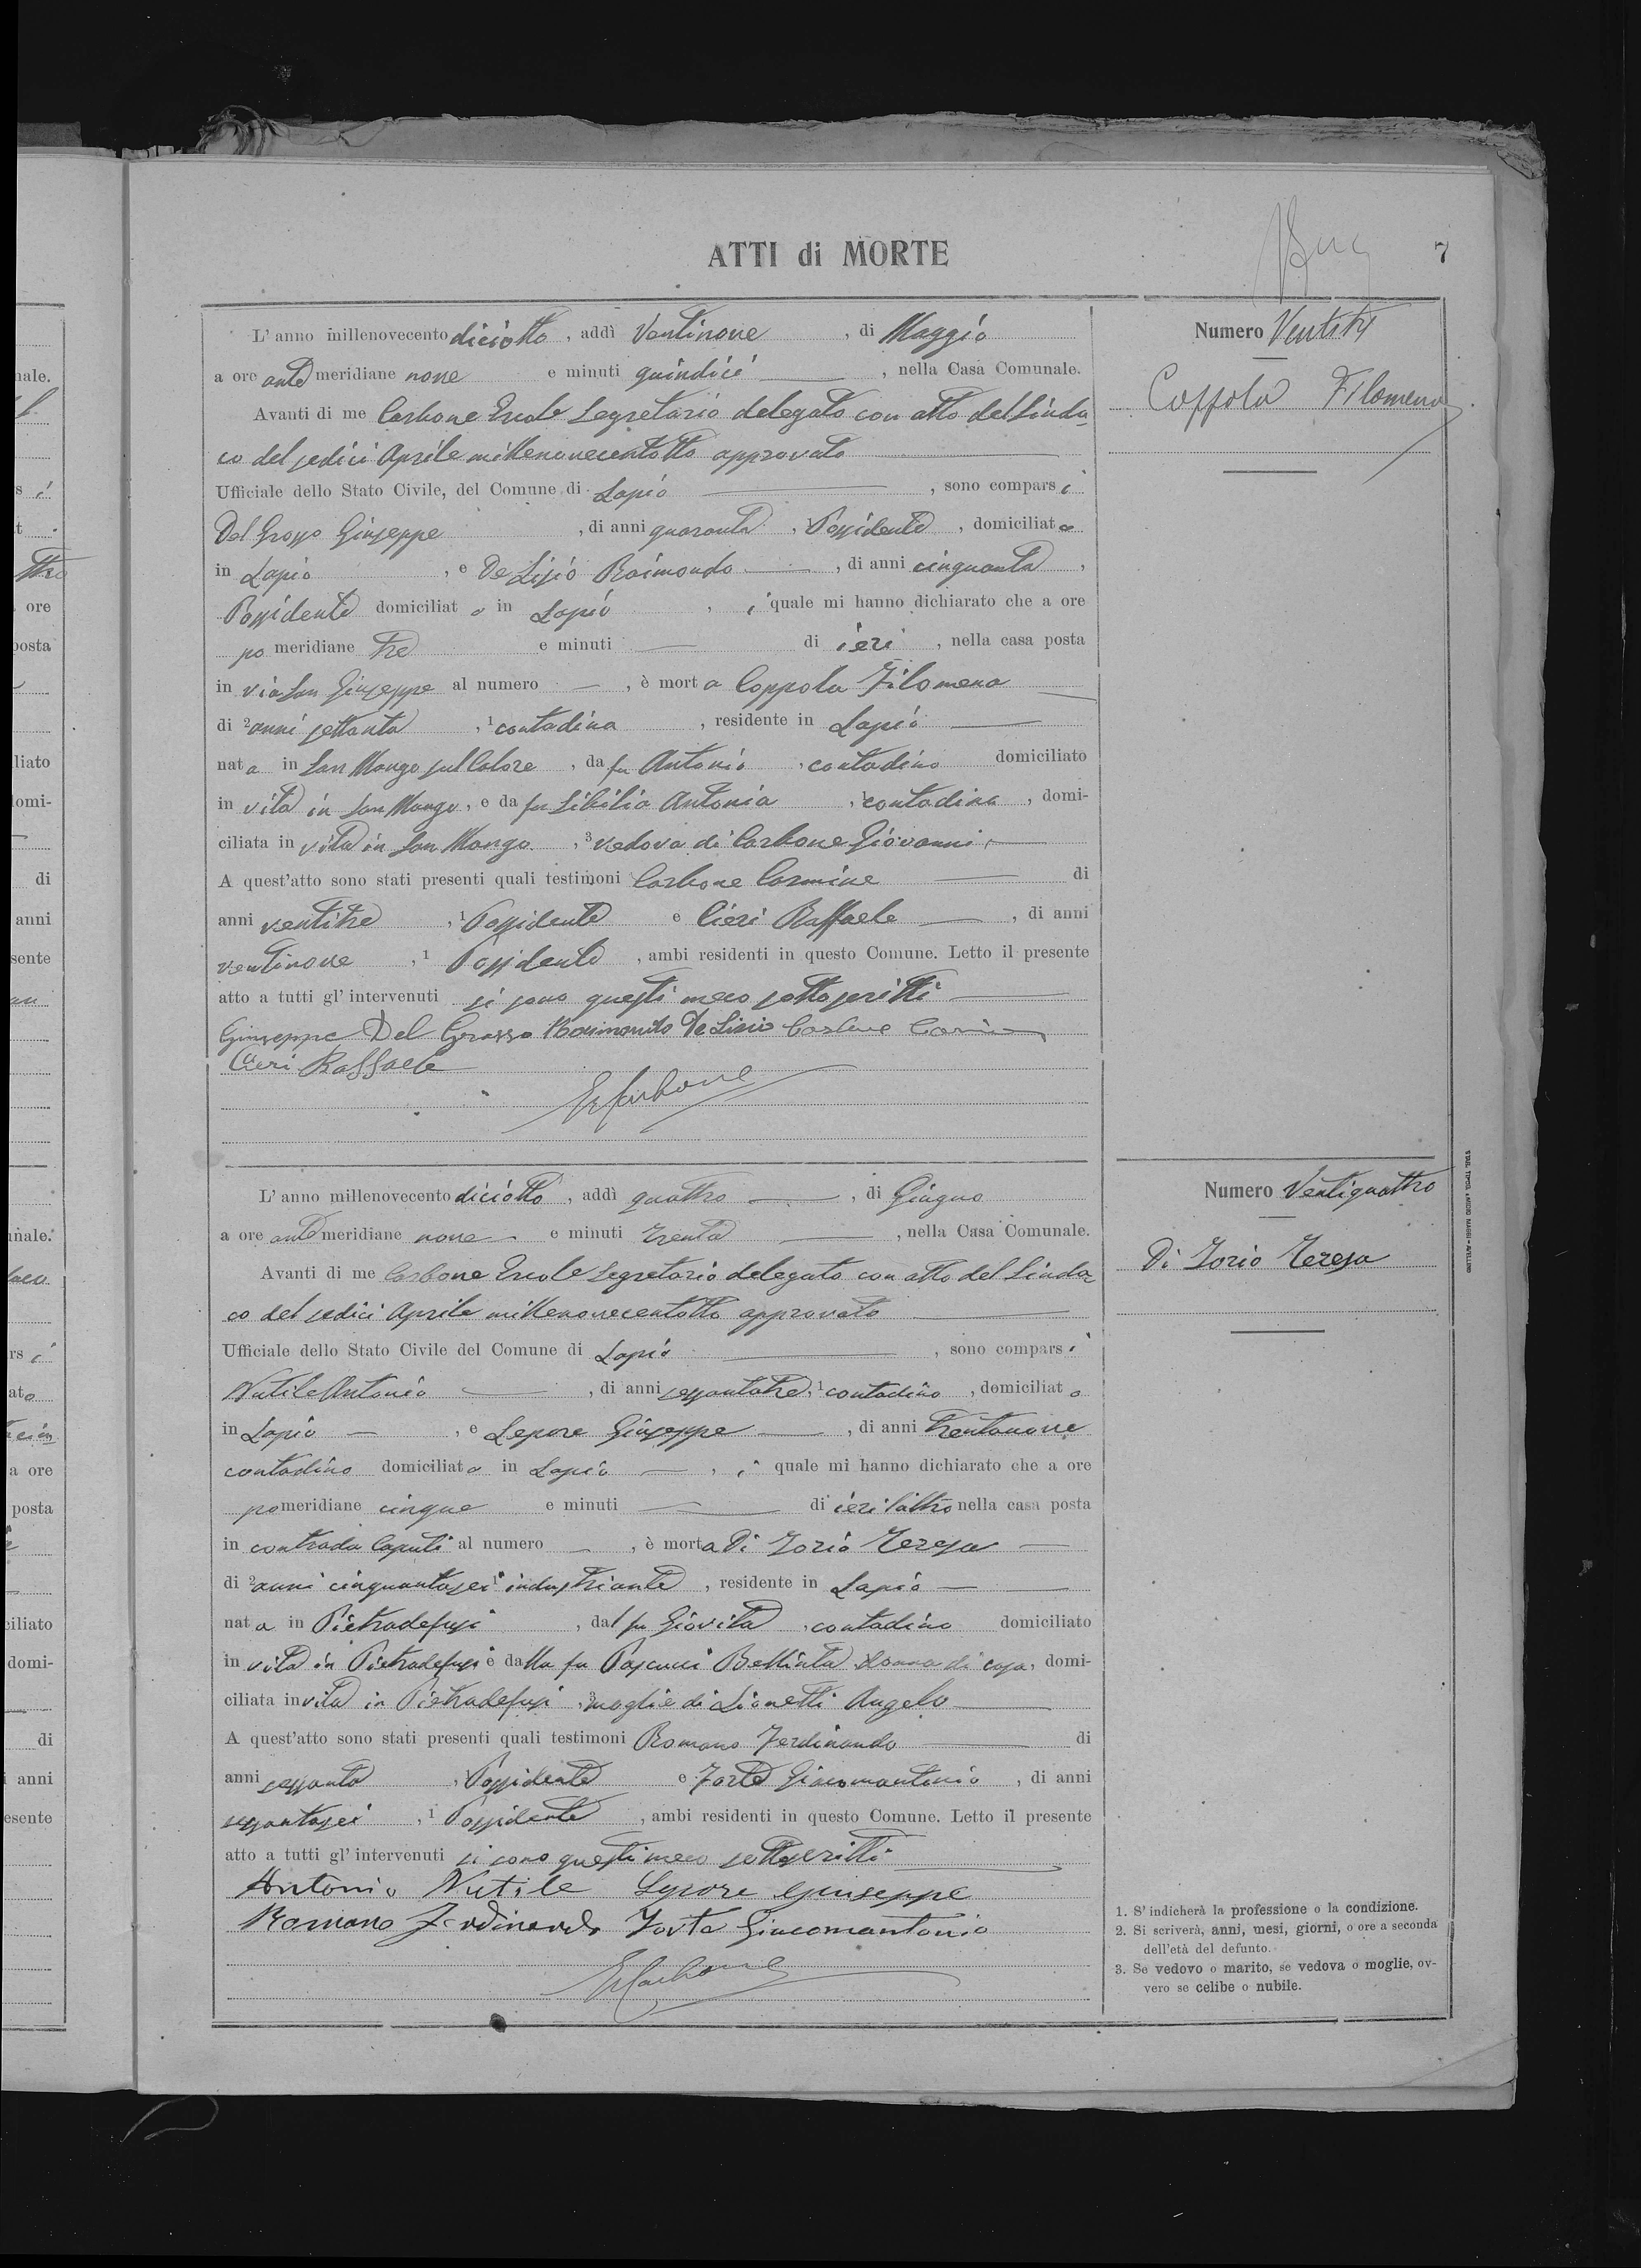 ATTI di MORTE
7
L'anno millenovecento diciotto, addì Ventinove, di Maggio
a ore antemeridiane nove e minuti quindici, nella Casa Comunale.
Avanti di me Carbone Ercole Segretario delegato con atto del Sinda-
co del sedici Aprile millenovecentotto approvato
Ufficiale dello Stato Civile, del Comune di Lapio, sono comparsi
Del Grosso Giuseppe, di anni quaranta, Possidente, domiciliato
in Lapio, e De Lisio Raimondo, di anni cinquanta,
Possidente domiciliato in Lapio, i quale mi hanno dichiarato che a ore
pomeridiane tre e minuti — di ieri, nella casa posta
in via San Giuseppe al numero —, è morta Coppola Filomena
di ²anni settanta, ¹contadina, residente in Lapio
nata in San Mango sul Calore, da fu Antonio, contadino domiciliato
in vita in San Mango, e da fu Sibilia Antonia, ¹contadina, domi-
ciliata in vita in San Mango, ³vedova di Carbone Giovanni.
A quest'atto sono stati presenti quali testimoni Carbone Carmine di
anni ventitre, ¹Possidente e Cieri Raffaele, di anni
ventinove, ¹Possidente, ambi residenti in questo Comune. Letto il presente
atto a tutti gl'intervenuti si sono questi meco sottoscritti
Giuseppe Del Grosso Raimondo De Lisio Carbone Carmine
Cieri Raffaele
E Carbone
Numero Ventitre
Coppola Filomena
L'anno millenovecento diciotto, addì quattro, di Giugno
a ore antemeridiane nove e minuti trenta, nella Casa Comunale.
Avanti di me Carbone Ercole Segretario delegato con atto del Sinda-
co del sedici Aprile millenovecentotto approvato
Ufficiale dello Stato Civile del Comune di Lapio, sono comparsi
Nutile Antonio, di anni sessantatre, ¹contadino, domiciliato
in Lapio, e Lepore Giuseppe, di anni trentanove
contadino domiciliato in Lapio, i quale mi hanno dichiarato che a ore
pomeridiane cinque e minuti — di ieri l'altro nella casa posta
in contrada Caputi al numero —, è morta Di Iorio Teresa
di ²anni cinquantasei ¹industriante, residente in Lapio
nata in Pietradefusi, dal fu Giovita, contadino domiciliato
in vita in Pietradefusi e dalla fu Pascucci Bellinta donna di casa, domi-
ciliata in vita in Pietradefusi, ³moglie di Lionetti Angelo
A quest'atto sono stati presenti quali testimoni Romano Ferdinando di
anni sessanta, Possidente e Forte Giacomantonio, di anni
sessantasei, ¹Possidente, ambi residenti in questo Comune. Letto il presente
atto a tutti gl'intervenuti si sono questi meco sottoscritti
Antonio Nutile Lepore Giuseppe
Romano Ferdinando Forte Giacomantonio
E Carbone
Numero Ventiquattro
Di Iorio Teresa
1. S'indicherà la professione o la condizione.
2. Si scriverà, anni, mesi, giorni, o ore a seconda
dell'età del defunto.
3. Se vedovo o marito, se vedova o moglie, ov-
vero se celibe o nubile.